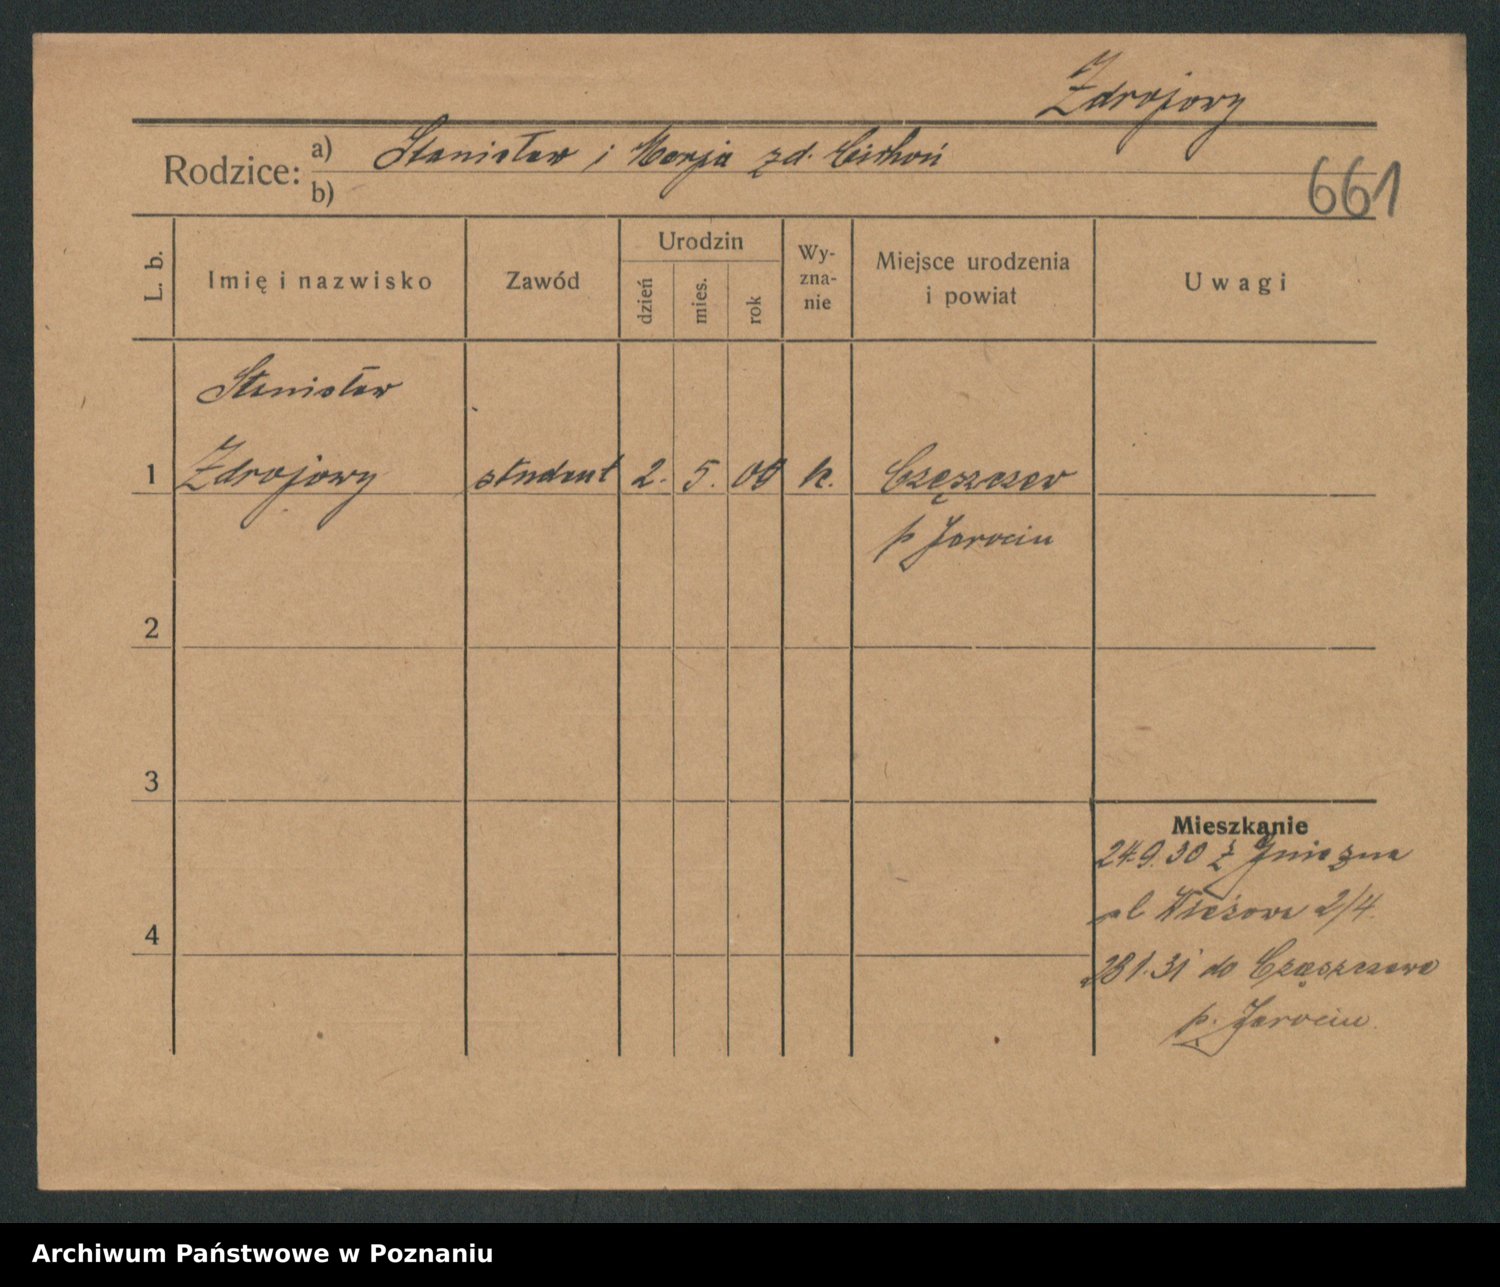 Zdrojowy
Rodzice: a) Stanisław i Marja zd. Cichoń
b)
661
L. b.
Imię i nazwisko
Zawód
Urodzin
dzień
mies.
rok
Wy-
zna-
nie
Miejsce urodzenia
i powiat
Uwagi
Stanisław
1 Zdrojowy student 2. 5. 00 k. Czeszewo
p Jarocin
2
3
4
Mieszkanie
24.9.30 z Gniezna
pl 2/4
28 1. 31 do Czeszewa
p. Jarocin
Archiwum Państwowe w Poznaniu